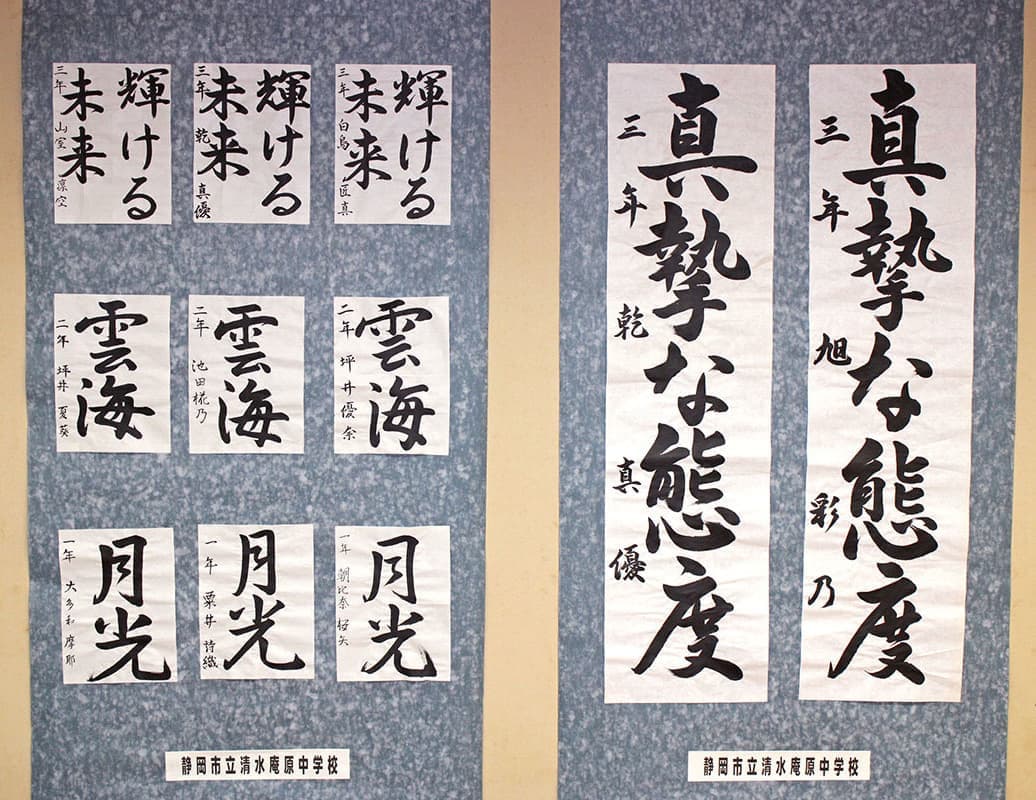 輝ける
未来
三年 白鳥 匠真
輝ける
未来
三年 乾 真優
輝ける
未来
三年 山室 凛空
雲海
二年 坪井優奈
雲海
二年 池田椛乃
雲海
二年 坪井 夏葵
月光
一年 朝比奈
月光
一年 粟井 詩織
月光
一年 大多和 摩耶
静岡市立清水庵原中学校
真摯な態度
三年 旭 彩乃
真摯な態度
三年 乾 真優
静岡市立清水庵原中学校